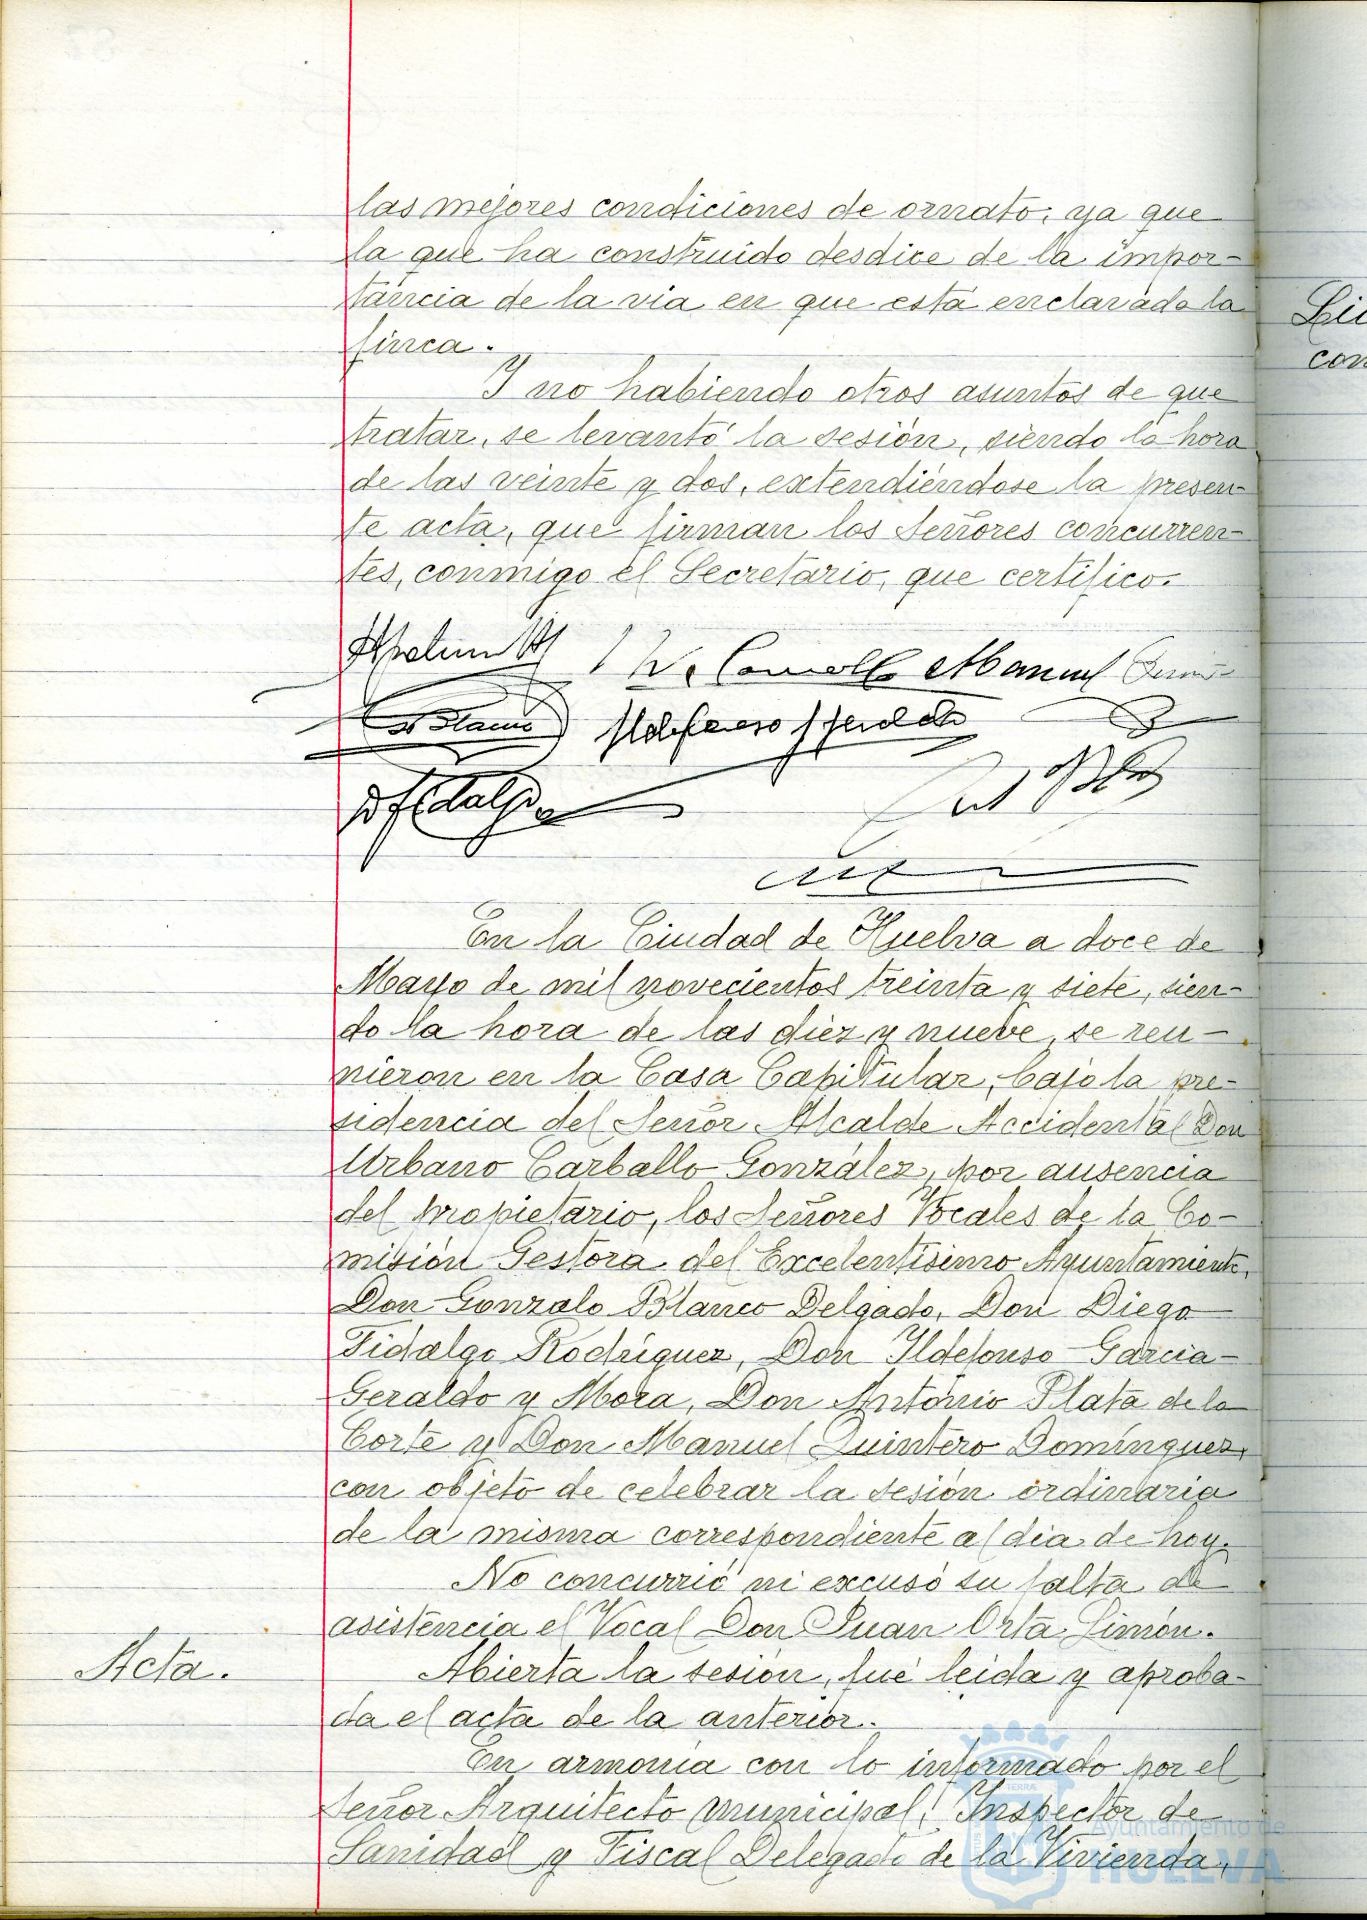 las mejores condiciones de ornato; ya que
la que ha construido desdice de la impor-
tancia de la via en que está enclavada la
finca.
Y no habiendo otros asuntos de que
tratar, se levantó la sesión, siendo la hora
de las veinte y dos, extendiéndose la presen-
te acta, que firman los Señores concurren-
tes, conmigo el Secretario, que certifico.
Manuel
Blanco Ildefonso
D Fidalgo
En la Ciudad de Huelva a doce de
Mayo de mil novecientos treinta y siete, sien-
do la hora de las diez y nueve, se reu-
nieron en la Casa Capitular, bajo la pre-
sidencia del Señor Alcalde Accidental Don
Urbano Carballo González, por ausencia
del propietario, los Señores Vocales de la Co-
misión Gestora del Excelentísimo Ayuntamiento,
Don Gonzalo Blanco Delgado, Don Diego
Fidalgo Rodríguez, Don Ildefonso Garcia-
Geraldo y Mora, Don António Plata de la
Corte y Don Manuel Quintero Domínguez,
con objeto de celebrar la sesión ordinaria
de la misma correspondiente al dia de hoy.
No concurrió ni excusó su falta de
asistencia el Vocal Don Juan Orta Limón.
Acta.
Abierta la sesión, fué leida y aproba-
da el acta de la anterior.
En armonía con lo informado por el
Señor Arquitecto municipal, Inspector de
Sanidad y Fiscal Delegado de la Vivienda,
Ayuntamiento de
HUELVA
Lii
con